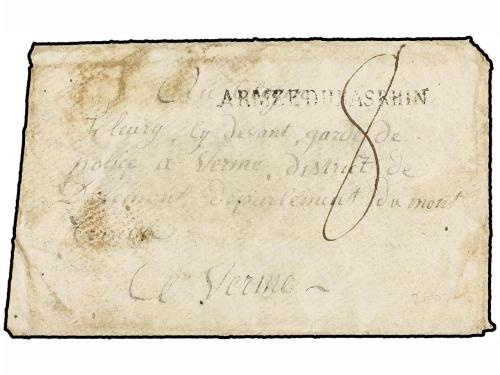 Au
ARMÉE DU BAS RHIN
8
fleury, Cy devant, garde de
police a Verme, district de
departement du mont
a Verme